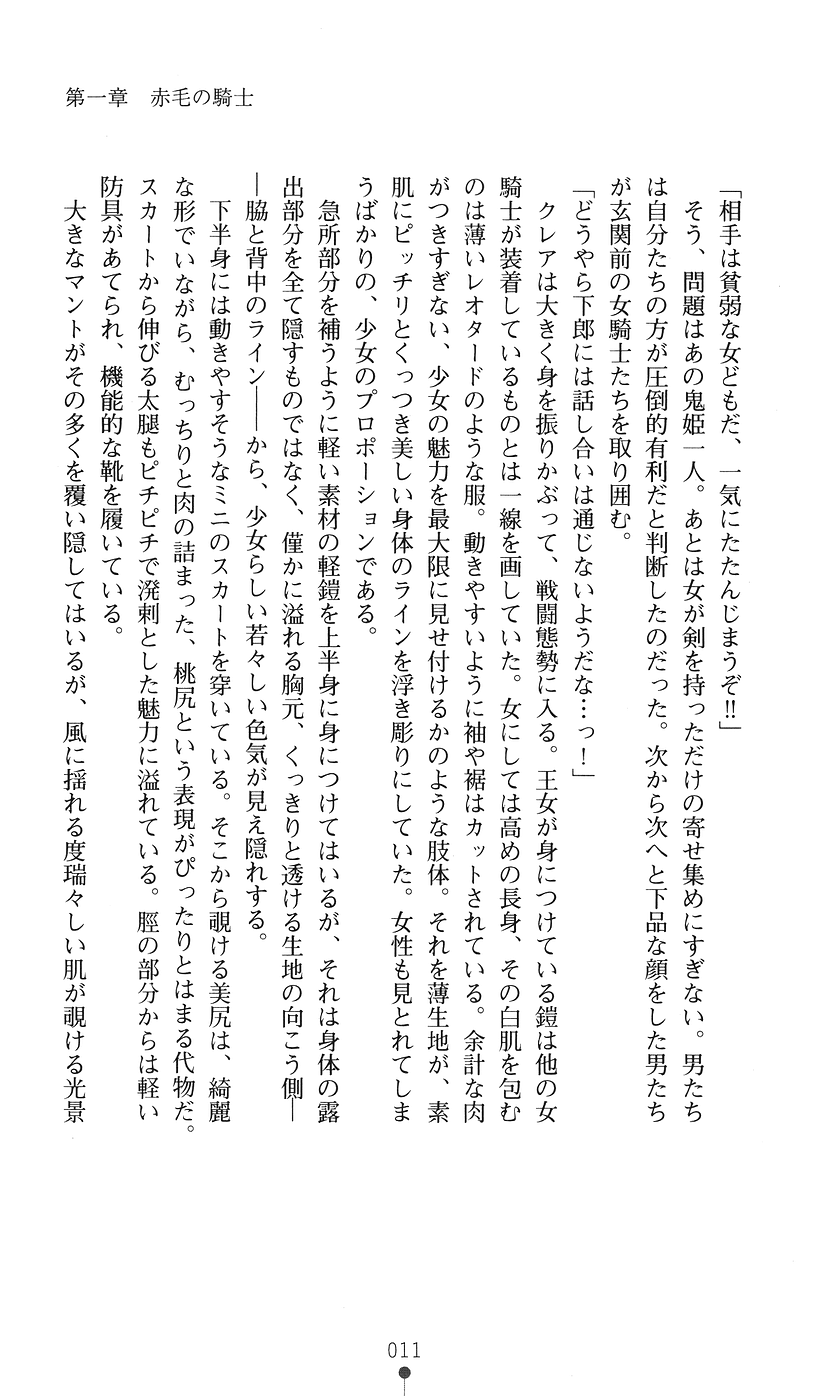 第一章　赤毛の騎士
「相手は貧弱な女どもだ、一気にたたんじまうぞ‼」
そう、問題はあの鬼姫一人。あとは女が剣を持っただけの寄せ集めにすぎない。男たち
は自分たちの方が圧倒的有利だと判断したのだった。次から次へと下品な顔をした男たち
が玄関前の女騎士たちを取り囲む。
「どうやら下郎には話し合いは通じないようだな…っ！」
クレアは大きく身を振りかぶって、戦闘態勢に入る。王女が身につけている鎧は他の女
騎士が装着しているものとは一線を画していた。女にしては高めの長身、その白肌を包む
のは薄いレオタードのような服。動きやすいように袖や裾はカットされている。余計な肉
がつきすぎない、少女の魅力を最大限に見せ付けるかのような肢体。それを薄生地が、素
肌にピッチリとくっつき美しい身体のラインを浮き彫りにしていた。女性も見とれてしま
うばかりの、少女のプロポーションである。
急所部分を補うように軽い素材の軽鎧を上半身に身につけてはいるが、それは身体の露
出部分を全て隠すものではなく、僅かに溢れる胸元、くっきりと透ける生地の向こう側―
―脇と背中のライン――から、少女らしい若々しい色気が見え隠れする。
下半身には動きやすそうなミニのスカートを穿いている。そこから覗ける美尻は、綺麗
な形でいながら、むっちりと肉の詰まった、桃尻という表現がぴったりとはまる代物だ。
スカートから伸びる太腿もピチピチで溌剌とした魅力に溢れている。脛の部分からは軽い
防具があてられ、機能的な靴を履いている。
大きなマントがその多くを覆い隠してはいるが、風に揺れる度瑞々しい肌が覗ける光景
011